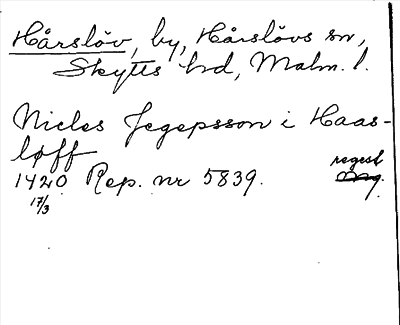 Hårslöv, by, Hårslövs sn,
Skytts hd, Malm. l.
Nicles Jegepsson i Haas-
løff
1420 Rep. nr 5839. regest
17/3